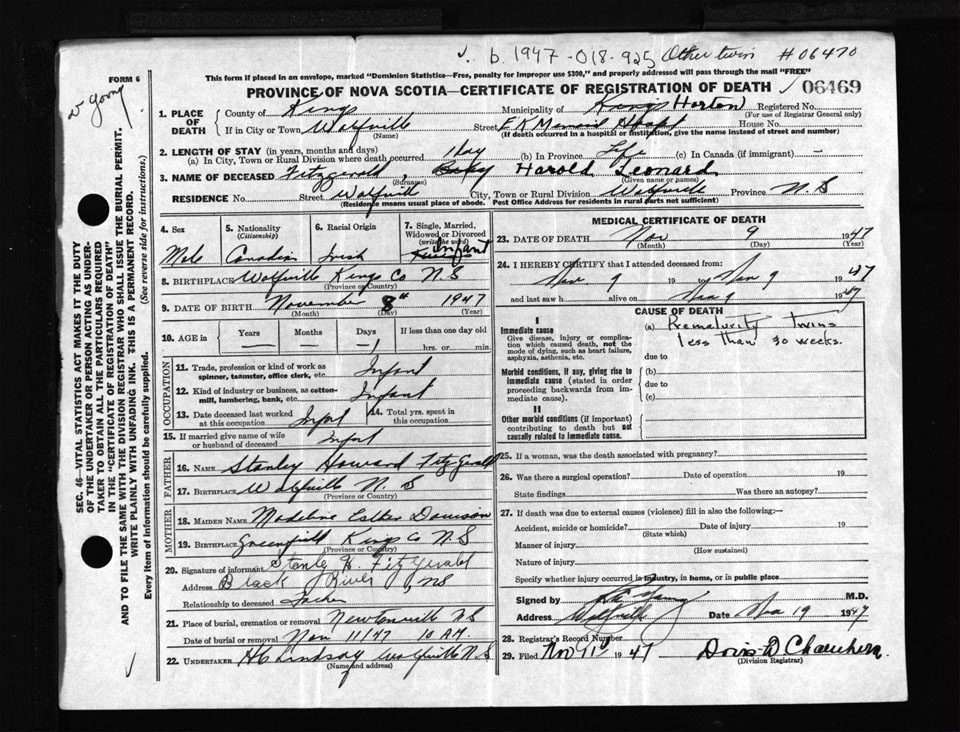 b. 1947-018-925 Other twin #06470
FORM 6
This form if placed in an envelope, marked "Dominion Statistics—Free, penalty for improper use $300," and properly addressed will pass through the mail "FREE"
PROVINCE OF NOVA SCOTIA—CERTIFICATE OF REGISTRATION OF DEATH 06469
1. PLACE OF DEATH
County of Kings Municipality of Kings Horton Registered No.
(For use of Registrar General only)
If in City or Town Wolfville Street E K Memorial Hospt House No.
(Name) (If death occurred in a hospital or institution, give the name instead of street and number)
2. LENGTH OF STAY (in years, months and days)
(a) In City, Town or Rural Division where death occurred 1 day (b) In Province Life (c) In Canada (if immigrant) —
3. NAME OF DECEASED Fitzgerald, Baby Harold Leonard
(Surname) (Given name or names)
RESIDENCE No. Street Wolfville City, Town or Rural Division Wolfville Province N.S
(Residence means usual place of abode. Post Office Address for residents in rural parts not sufficient)
4. Sex 5. Nationality (Citizenship) 6. Racial Origin 7. Single, Married, Widowed or Divorced (write the word)
Male Canadian Irish Infant
8. BIRTHPLACE Wolfville Kings Co N.S
(Province or Country)
9. DATE OF BIRTH November 8th 1947
(Month) (Day) (Year)
10. AGE in Years Months Days If less than one day old
— — 1 hrs. or min.
OCCUPATION
11. Trade, profession or kind of work as spinner, teamster, office clerk, etc. Infant
12. Kind of industry or business, as cotton-mill, lumbering, bank, etc. Infant
13. Date deceased last worked at this occupation Infant 14. Total yrs. spent in this occupation
15. If married give name of wife or husband of deceased Infant
FATHER
16. NAME Stanley Howard FitzGerald
17. BIRTHPLACE Wolfville N.S
(Province or Country)
MOTHER
18. MAIDEN NAME Madeline Esther Davison
19. BIRTHPLACE Greenfield Kings Co N.S
(Province or Country)
20. Signature of informant Stanley H. FitzGerald
Address Black River, NS
Relationship to deceased Father
21. Place of burial, cremation or removal Newtonville NS
Date of burial or removal Nov 11/47 10 A.M.
22. UNDERTAKER HC Lindsay Wolfville N.S
(Name and address)
MEDICAL CERTIFICATE OF DEATH
23. DATE OF DEATH Nov 9 1947
(Month) (Day) (Year)
24. I HEREBY CERTIFY that I attended deceased from:
Nov 9 19 to Nov 9 1947
and last saw h alive on Nov 9 1947
CAUSE OF DEATH
I
Immediate cause
Give disease, injury or complication which caused death, not the mode of dying, such as heart failure, asphyxia, asthenia, etc.
(a) Prematurity Twins
less than 30 weeks.
due to
Morbid conditions, if any, giving rise to immediate cause (stated in order proceeding backwards from immediate cause).
(b)
due to
(c)
II
Other morbid conditions (if important) contributing to death but not causally related to immediate cause.
25. If a woman, was the death associated with pregnancy?
26. Was there a surgical operation? Date of operation 19
State findings Was there an autopsy?
27. If death was due to external causes (violence) fill in also the following:—
Accident, suicide or homicide? Date of injury 19
(State which)
Manner of injury
(How sustained)
Nature of injury
Specify whether injury occurred in industry, in home, or in public place
Signed by M.D.
Address Wolfville Date Nov 19 1947
28. Registrar's Record Number
29. Filed Nov 11 1947 Doris D Chambers
(Division Registrar)
SEC. 46—VITAL STATISTICS ACT MAKES IT THE DUTY
OF THE UNDERTAKER OR PERSON ACTING AS UNDERTAKER
TO OBTAIN ALL THE PARTICULARS REQUIRED
IN THE "CERTIFICATE OF REGISTRATION OF DEATH"
AND TO FILE THE SAME WITH THE DIVISION REGISTRAR WHO SHALL ISSUE THE BURIAL PERMIT.
WRITE PLAINLY WITH UNFADING INK. THIS IS A PERMANENT RECORD.
Every item of information should be carefully supplied. (See reverse side for instructions.)